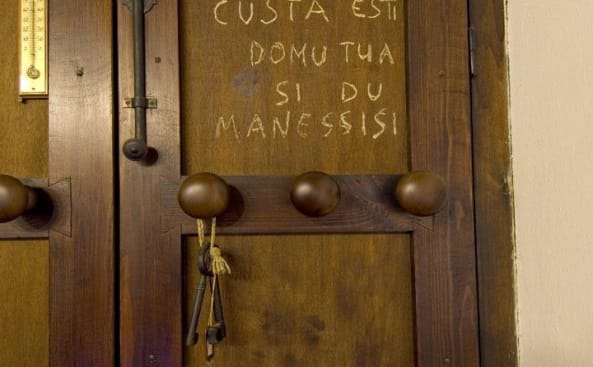 CUSTA ESTI
DOMU TUA
SI DU
MANESSISI